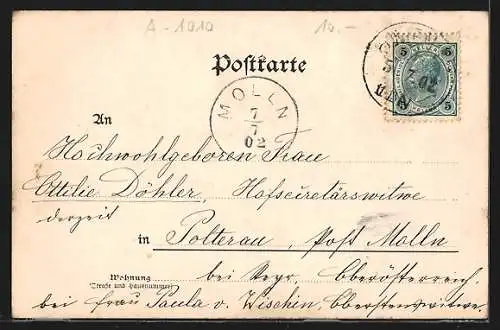 A-1910 10.-
Postkarte
MOLLN
7/7
02
5
5
7 02
An
Hochwohlgeboren Frau
Ottilie Döhler, Hofsecretärswitwe
derzeit
in Polterau, Post Molln
Wohnung
(Straße und Hausnummer)
bei Steyr, Oberösterreich,
bei Frau Paula v. Oberstenswitwe